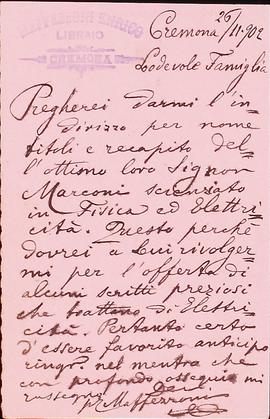 ENRICO
LIBRAIO
CREMONA
Cremona 26/11-902
Lodevole Famiglia
Pregherei darmi l'in-
dirizzo per nome
titoli e recapito del-
l'ottimo loro Signor
Marconi scienziato
in Fisica ed Elettri-
cità. Questo perché
dovrei a Lui rivolger-
mi per l'offerta di
alcuni scritti preziosi
che trattano di Elettri-
cità. Pertanto certo
d'essere favorito anticipo
ringr. nel mentre che
con profondo ossequio mi
rassegno